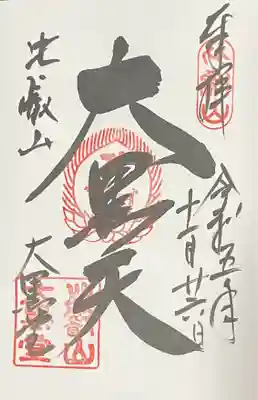 奉拝
令和五年
十一月廿六日
大黒天
比叡山
大黒堂